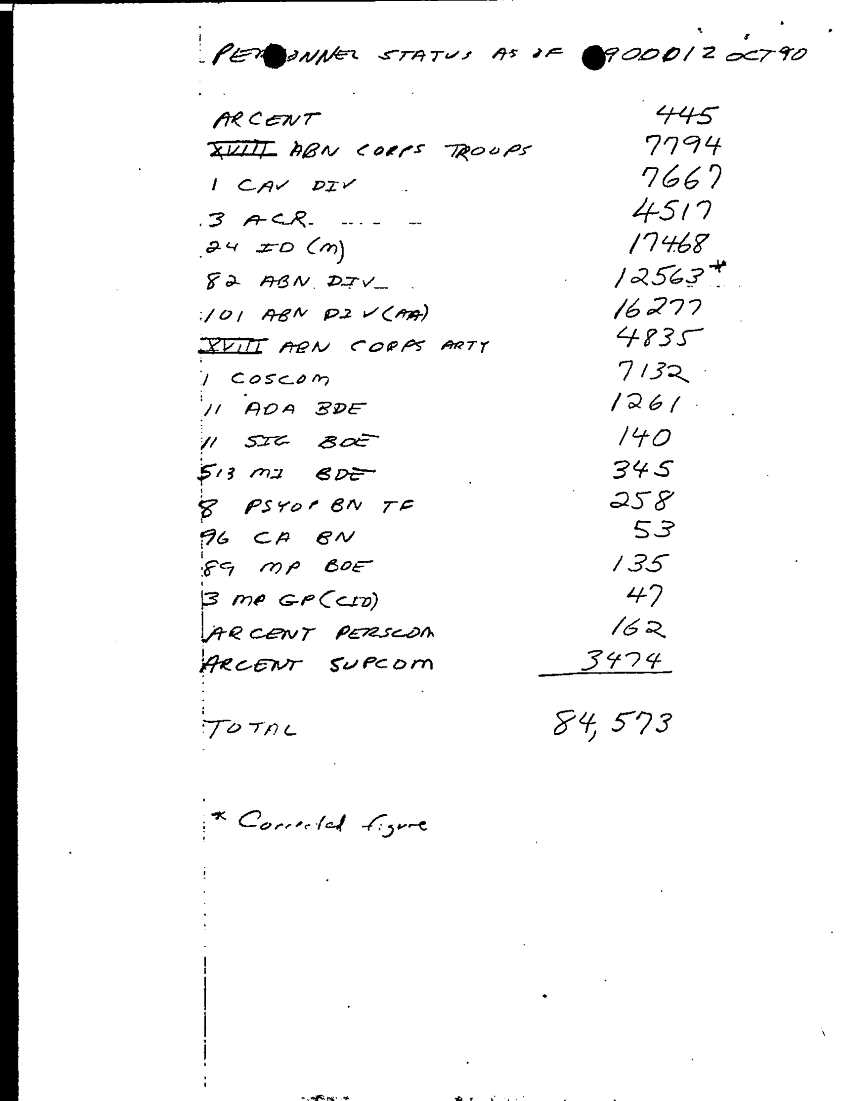 PERSONNEL STATUS AS OF 900D012 OCT 90
ARCENT 445
XVIII ABN CORPS TROOPS 7794
1 CAV DIV 7667
3 ACR 4517
24 ID (M) 17468
82 ABN DIV 12563*
101 ABN DIV (AA) 16277
XVIII ABN CORPS ARTY 4835
1 COSCOM 7132
11 ADA BDE 1261
11 SIG BDE 140
513 MI BDE 345
8 PSYOP BN TF 258
96 CA BN 53
89 MP BDE 135
3 MP GP (CID) 47
ARCENT PERSCOM 162
ARCENT SUPCOM 3474
TOTAL 84,573
* Corrected figure